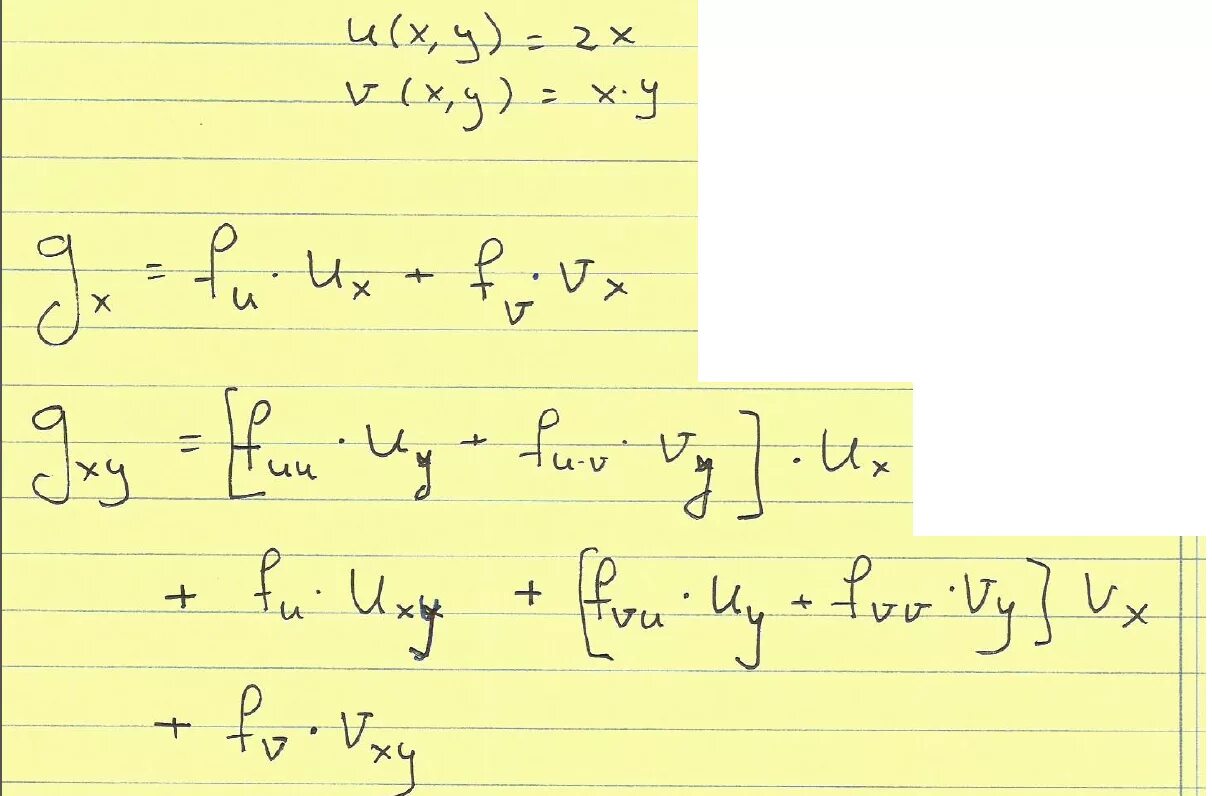 u(x,y) = 2x
v(x,y) = x·y
g_x = f_u · u_x + f_v · v_x
g_xy = [f_uu · u_y + f_u·v · v_y] · u_x
+ f_u · u_xy + [f_vu · u_y + f_vv · v_y] v_x
+ f_v · v_xy